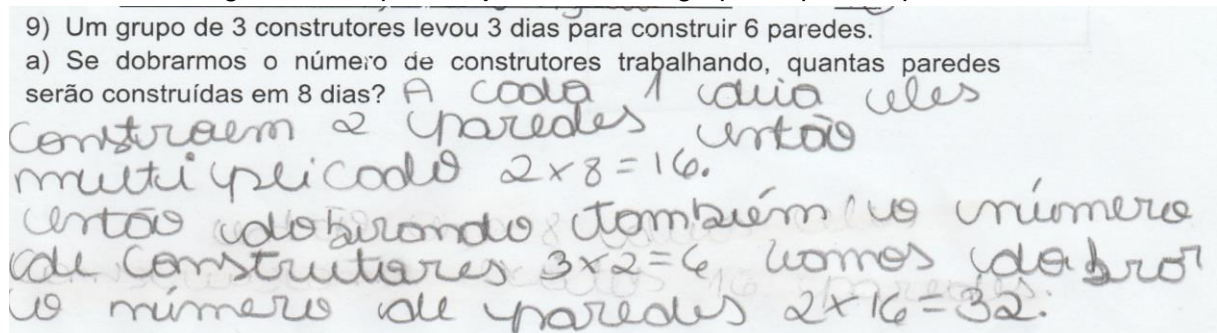 9) Um grupo de 3 construtores levou 3 dias para construir 6 paredes.
a) Se dobrarmos o número de construtores trabalhando, quantas paredes
serão construídas em 8 dias? A cada 1 dia eles
constroem 2 paredes então
multiplicado 2x8=16.
então dobrando também o número
de construtores 3x2=6 vamos dobrar
o número de paredes 2x16=32.